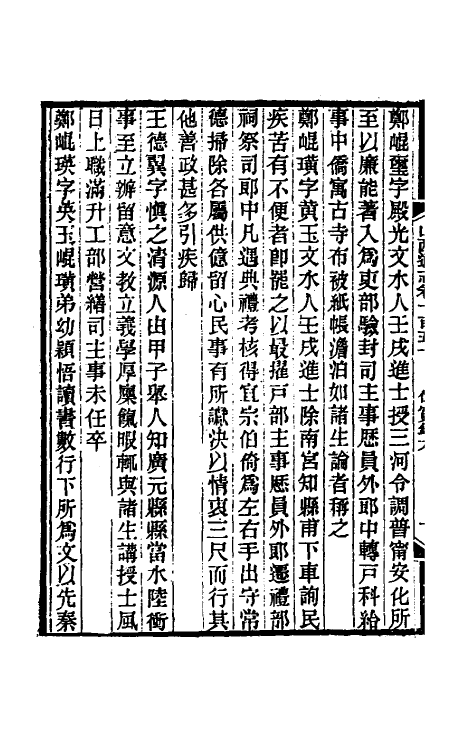 鄭崐璽字殿光文水人壬戌進士授三河令調普甯安化所
至以廉能著入爲吏部驗封司主事歷員外郎中轉戸科給
事中僑寓古寺布被紙帳澹泊如諸生論者稱之
鄭崐璜字黄玉文水人壬戌進士除南宫知縣甫下車詢民
疾苦有不便者卽罷之以最擢戸部主事歷員外郎遷禮部
祠祭司郎中凡遇典禮考核得宜宗伯倚爲左右手出守常
德掃除各屬供億留心民事有所讞決以情衷三尺而行其
他善政甚多引疾歸
王德翼字愼之清源人由甲子舉人知廣元縣縣當水陸衝
事至立辦留意文教立義學厚廩餼暇輒與諸生講授士風
日上職滿升工部營繕司主事未任卒
鄭崐瑛字英玉崐璜弟幼穎悟讀書數行下所爲文以先秦